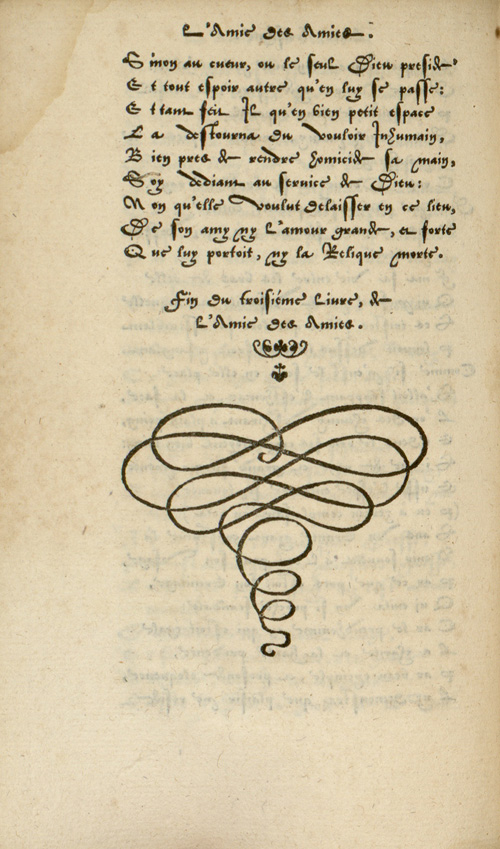 L'Amie des Amies.
Sinon au cueur, ou le seul Dieu preside
Et tout espoir autre qu'en luy se passe:
Et tant feit Il qu'en bien petit espace
La destourna du vouloir Inhumain,
Bien pres de rendre homicide sa main,
Soy dediant au service de Dieu:
Non qu'elle voulut delaisser en ce lieu,
De son amy ny L'amour grande, et forte
Que luy portoit, ny la Relique morte.
Fin du troisiéme Livre, de
L'Amie des Amies.